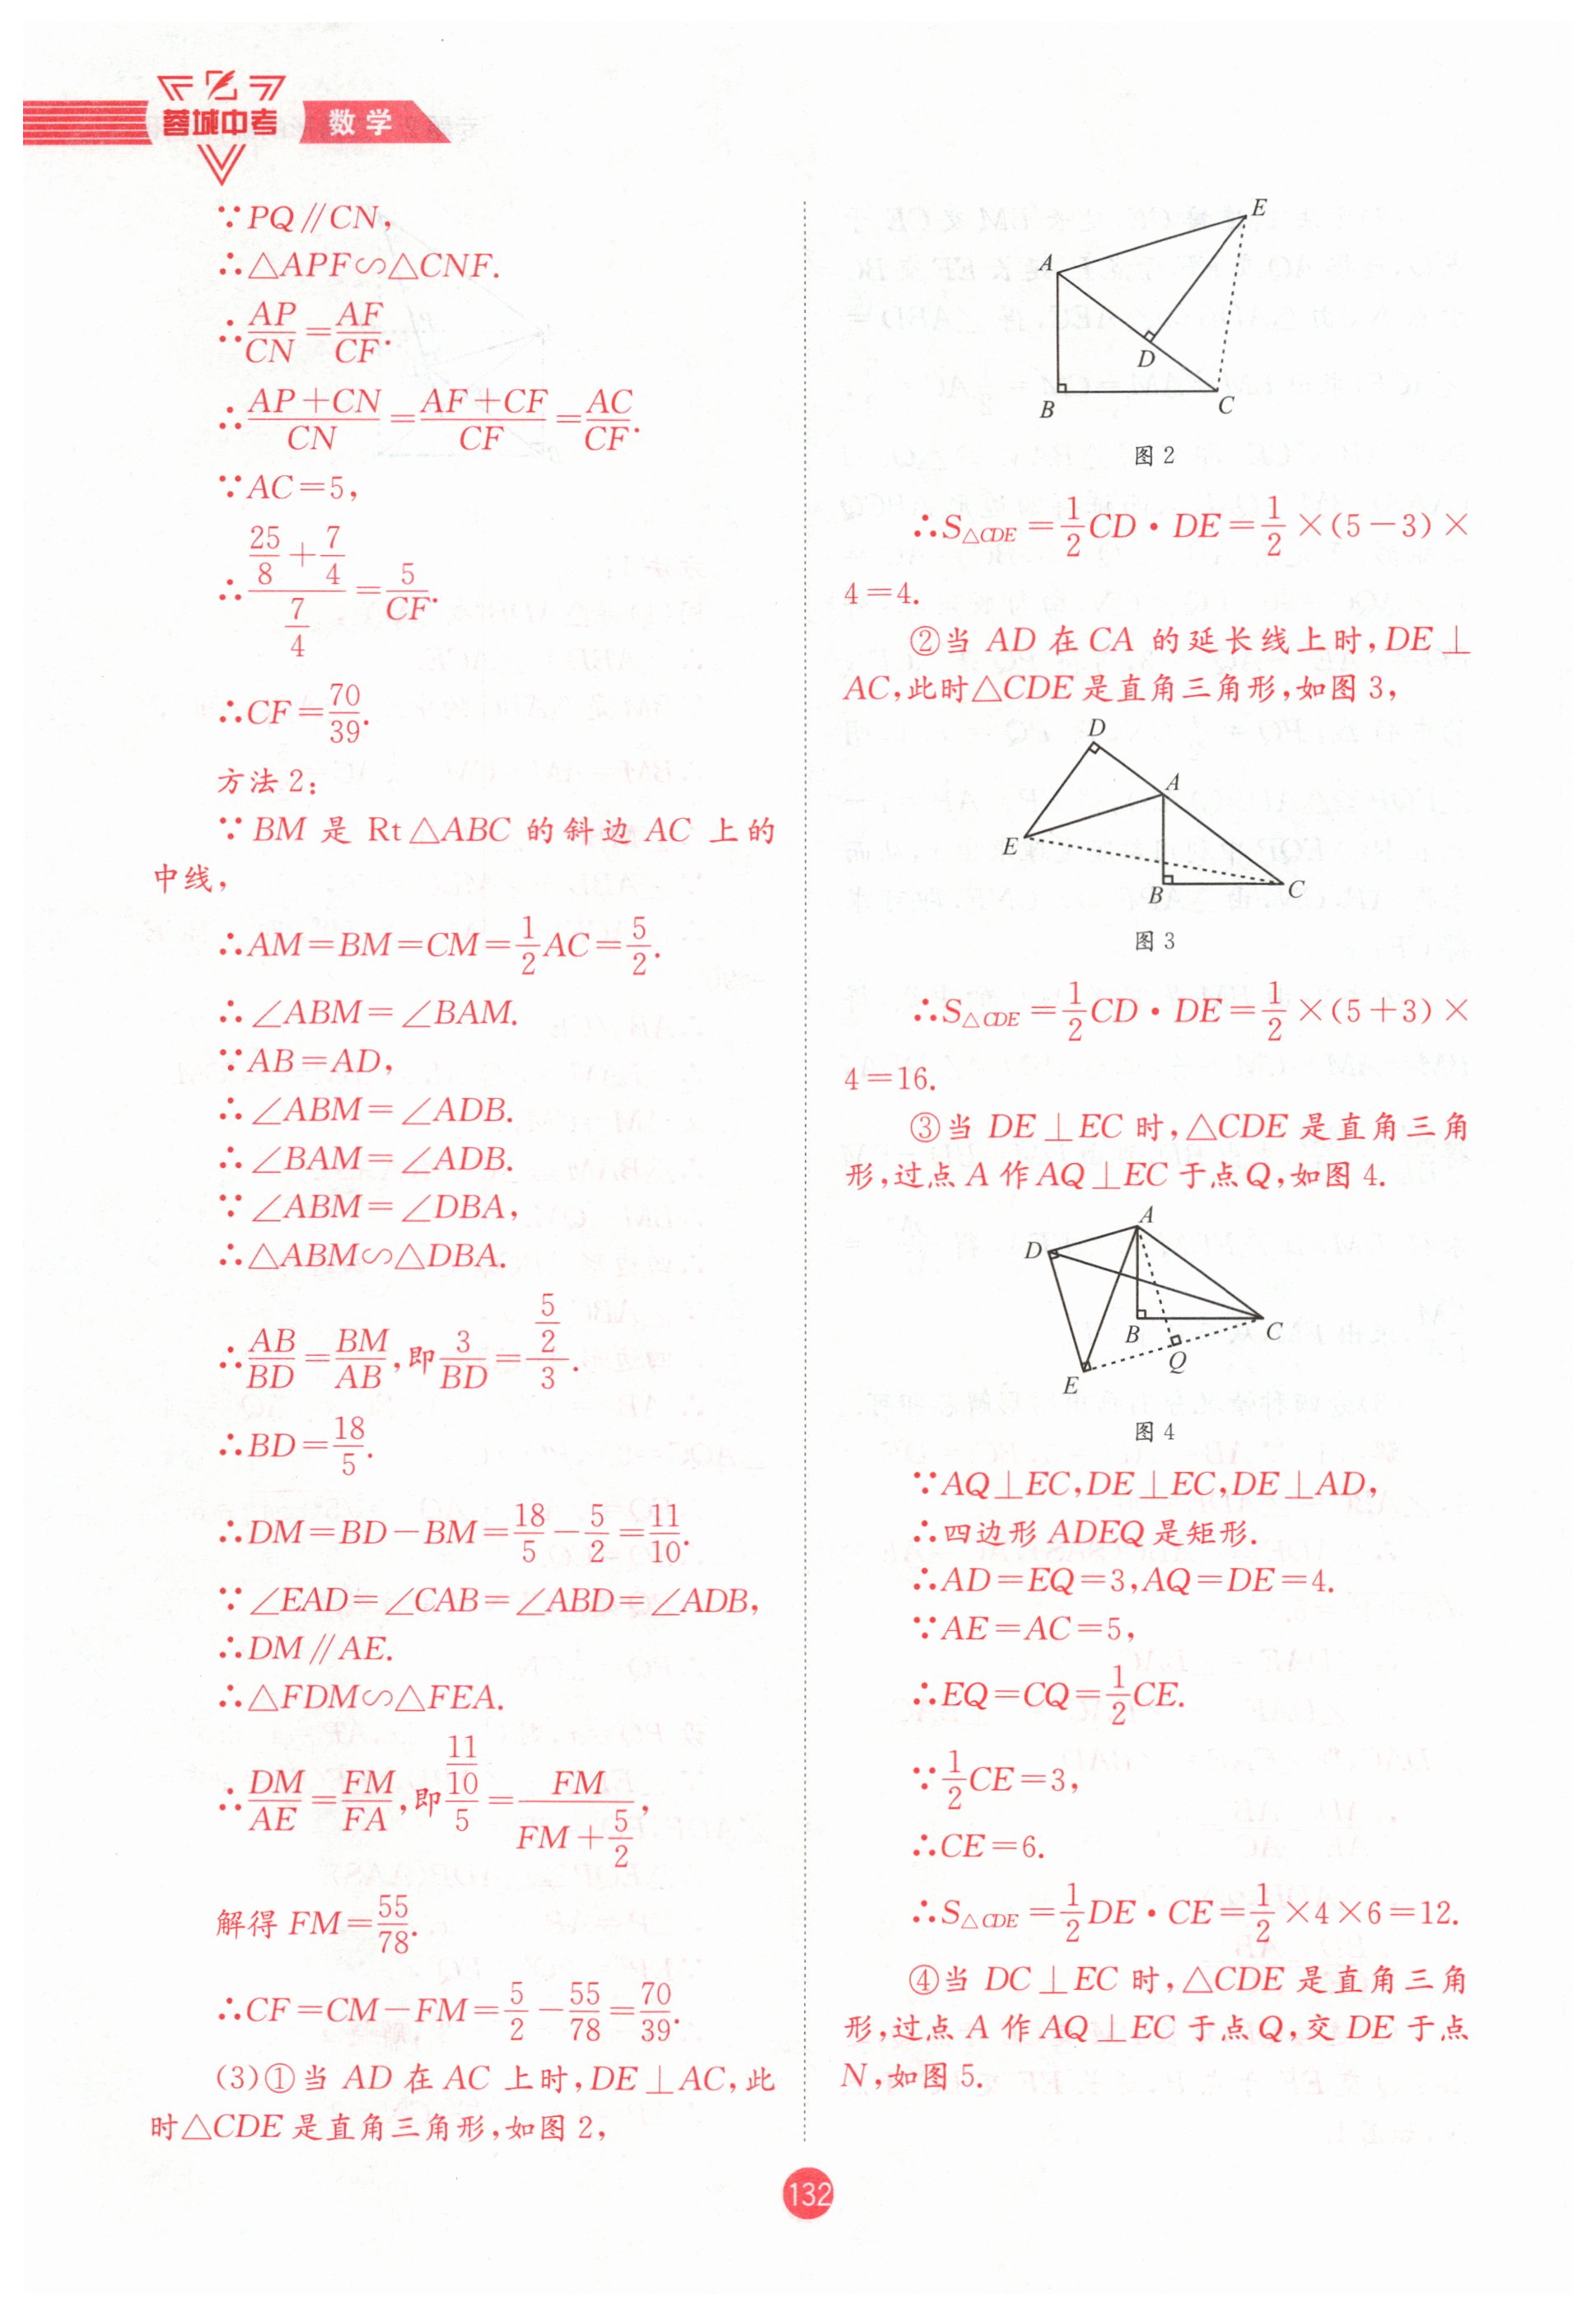 蓉城中考 数学
∵PQ∥CN,
∴△APF∽△CNF.
∴AP/CN=AF/CF.
∴(AP+CN)/CN=(AF+CF)/CF=AC/CF.
∵AC=5,
∴(25/8+7/4)/(7/4)=5/CF.
∴CF=70/39.
方法2:
∵BM 是 Rt△ABC 的斜边 AC 上的
中线,
∴AM=BM=CM=1/2AC=5/2.
∴∠ABM=∠BAM.
∵AB=AD,
∴∠ABM=∠ADB.
∴∠BAM=∠ADB.
∵∠ABM=∠DBA,
∴△ABM∽△DBA.
∴AB/BD=BM/AB,即3/BD=(5/2)/3.
∴BD=18/5.
∴DM=BD-BM=18/5-5/2=11/10.
∵∠EAD=∠CAB=∠ABD=∠ADB,
∴DM∥AE.
∴△FDM∽△FEA.
∴DM/AE=FM/FA,即(11/10)/5=FM/(FM+5/2),
解得 FM=55/78.
∴CF=CM-FM=5/2-55/78=70/39.
(3)①当 AD 在 AC 上时,DE⊥AC,此
时△CDE 是直角三角形,如图2,
E
A
D
B
C
图2
∴S△CDE=1/2CD·DE=1/2×(5-3)×
4=4.
②当 AD 在 CA 的延长线上时,DE⊥
AC,此时△CDE 是直角三角形,如图3,
D
A
E
B
C
图3
∴S△CDE=1/2CD·DE=1/2×(5+3)×
4=16.
③当 DE⊥EC 时,△CDE 是直角三角
形,过点 A 作 AQ⊥EC 于点 Q,如图4.
A
D
B
C
Q
E
图4
∵AQ⊥EC,DE⊥EC,DE⊥AD,
∴四边形 ADEQ 是矩形.
∴AD=EQ=3,AQ=DE=4.
∵AE=AC=5,
∴EQ=CQ=1/2CE.
∵1/2CE=3,
∴CE=6.
∴S△CDE=1/2DE·CE=1/2×4×6=12.
④当 DC⊥EC 时,△CDE 是直角三角
形,过点 A 作 AQ⊥EC 于点 Q,交 DE 于点
N,如图5.
132